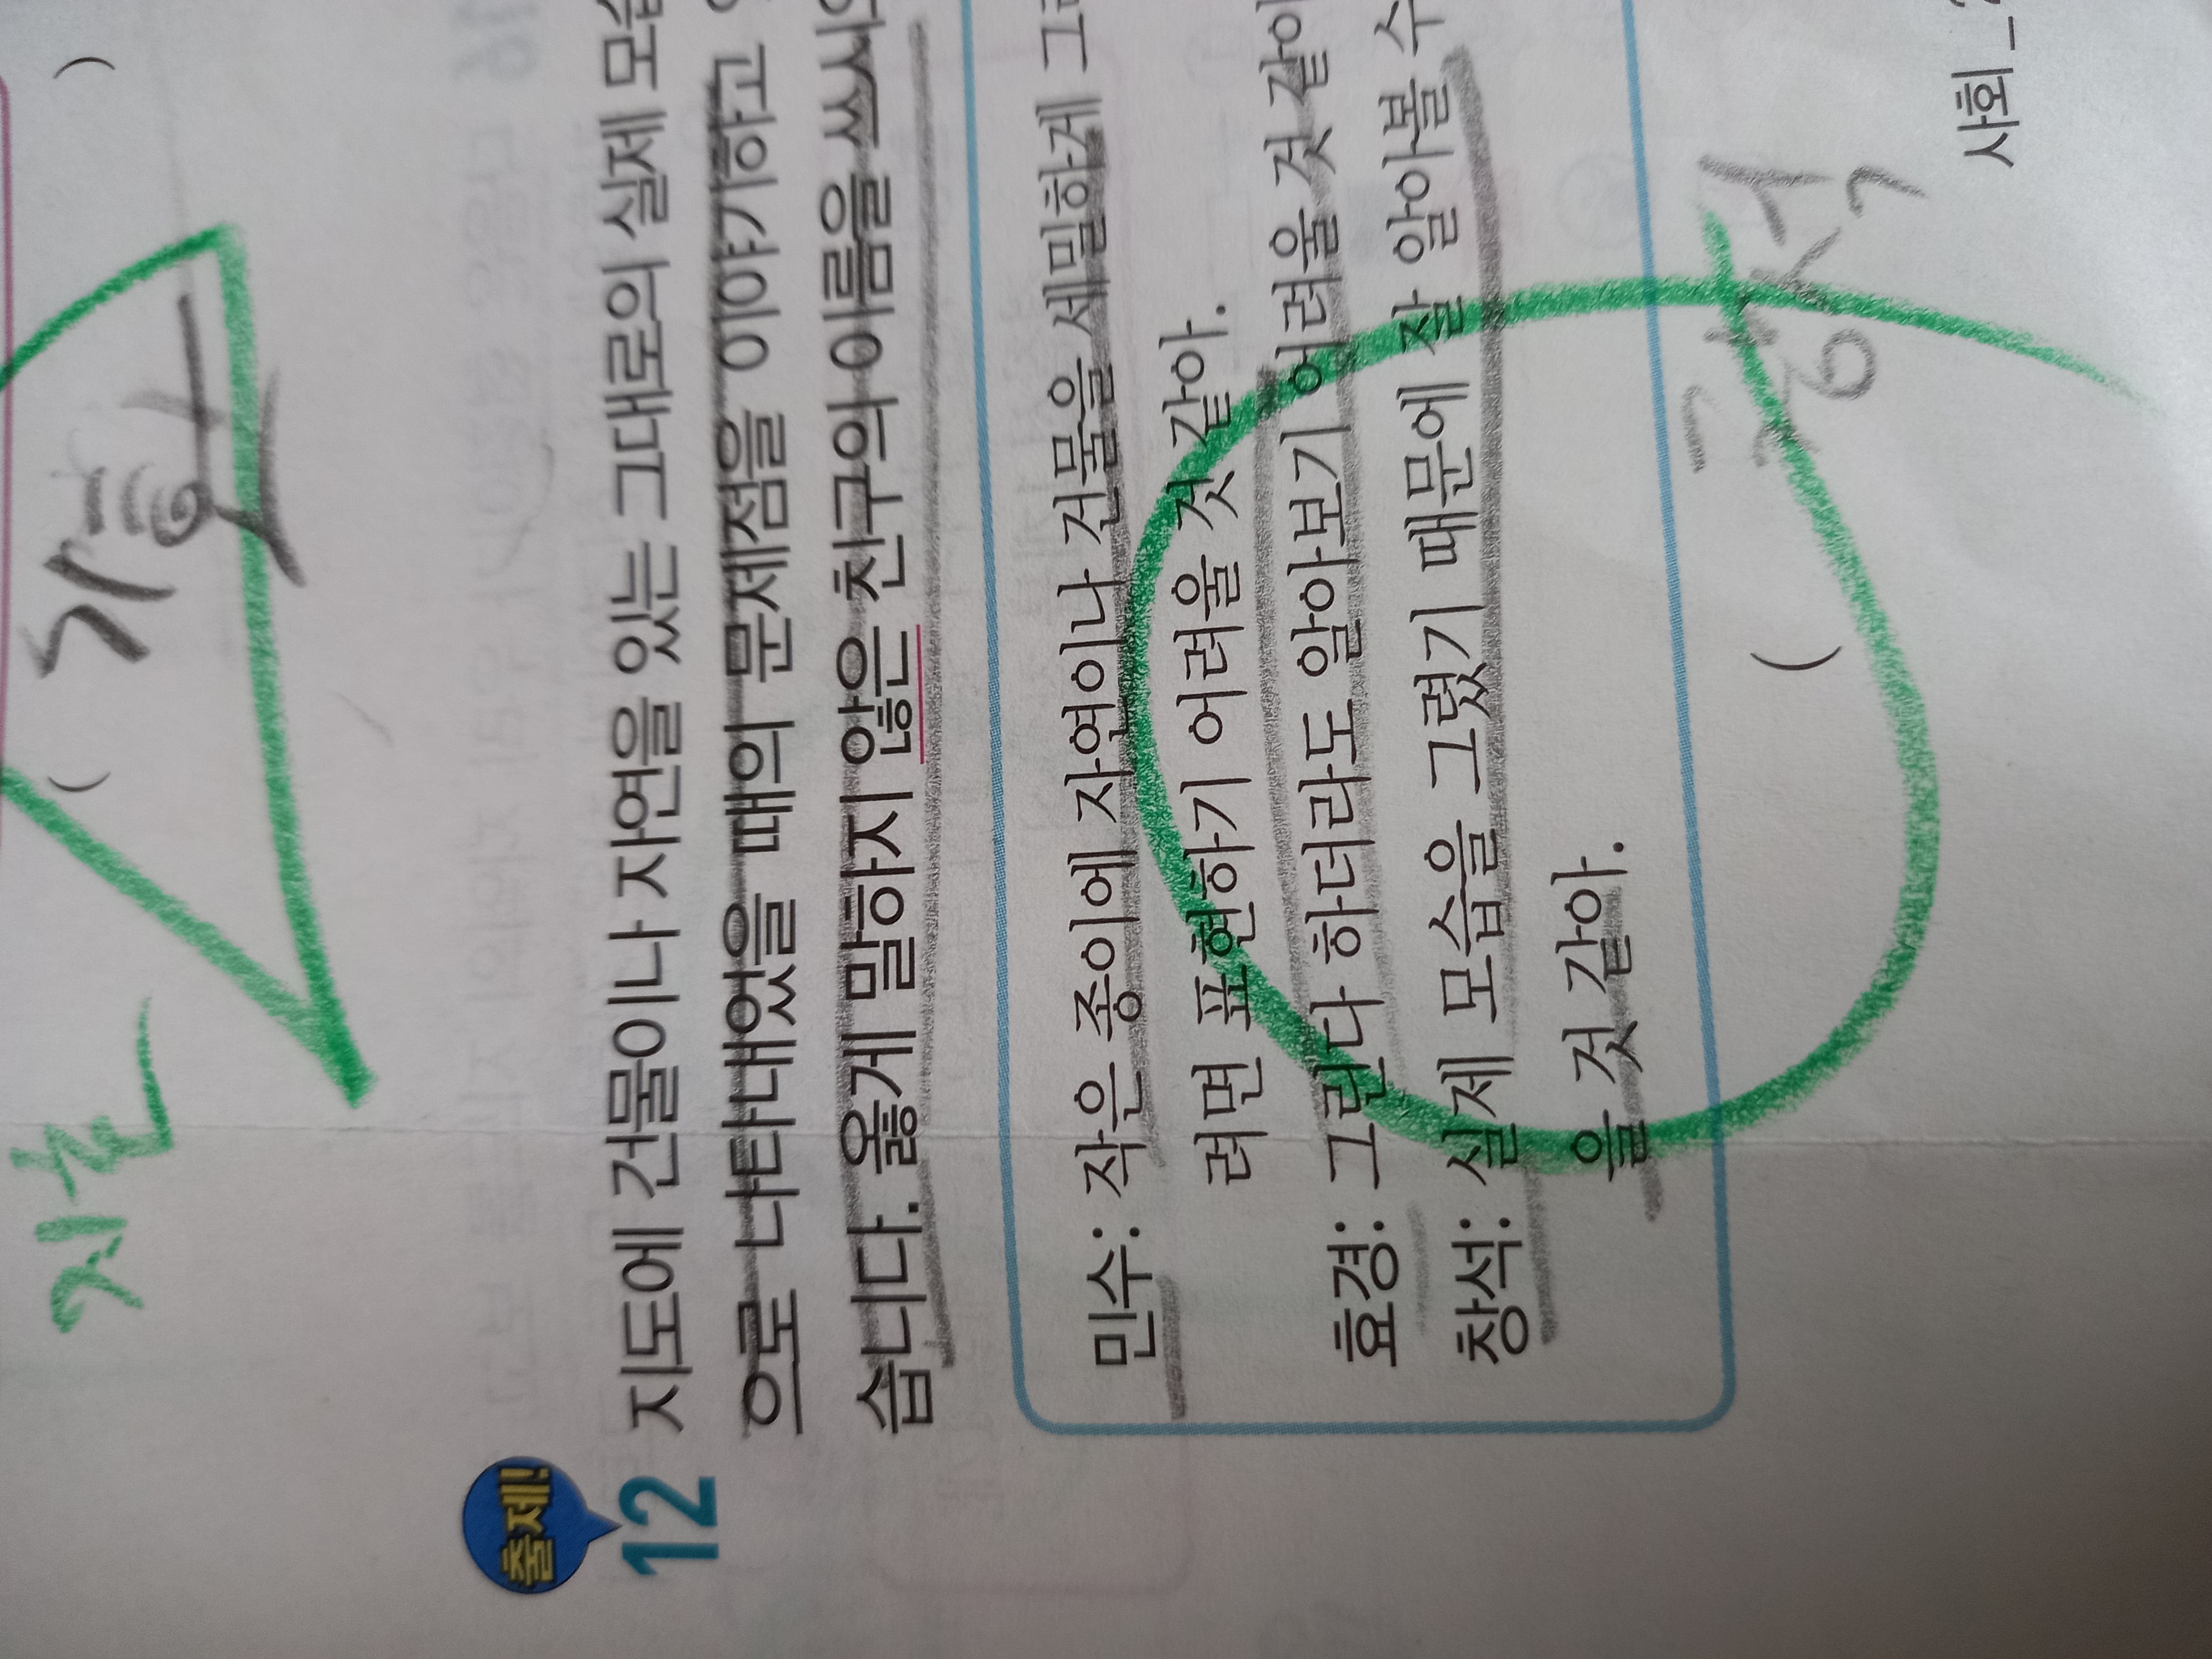 )
(
출제!
12 지도에 건물이나 자연을 있는 그대로의 실제
으로 나타내었을 때의 문제점을 이야기하고
습니다. 옳게 말하지 않은 친구의 이름을
민수: 작은 종이에 자연이나 건물을 세밀하게
려면 표현하기 어려울 것 같아.
효경: 그린다 하더라도 알아보기 어려울 것 같아
창석: 실제 모습을 그렸기 때문에 잘 알아볼 수
을 것 같아.
( 창석
사회_2